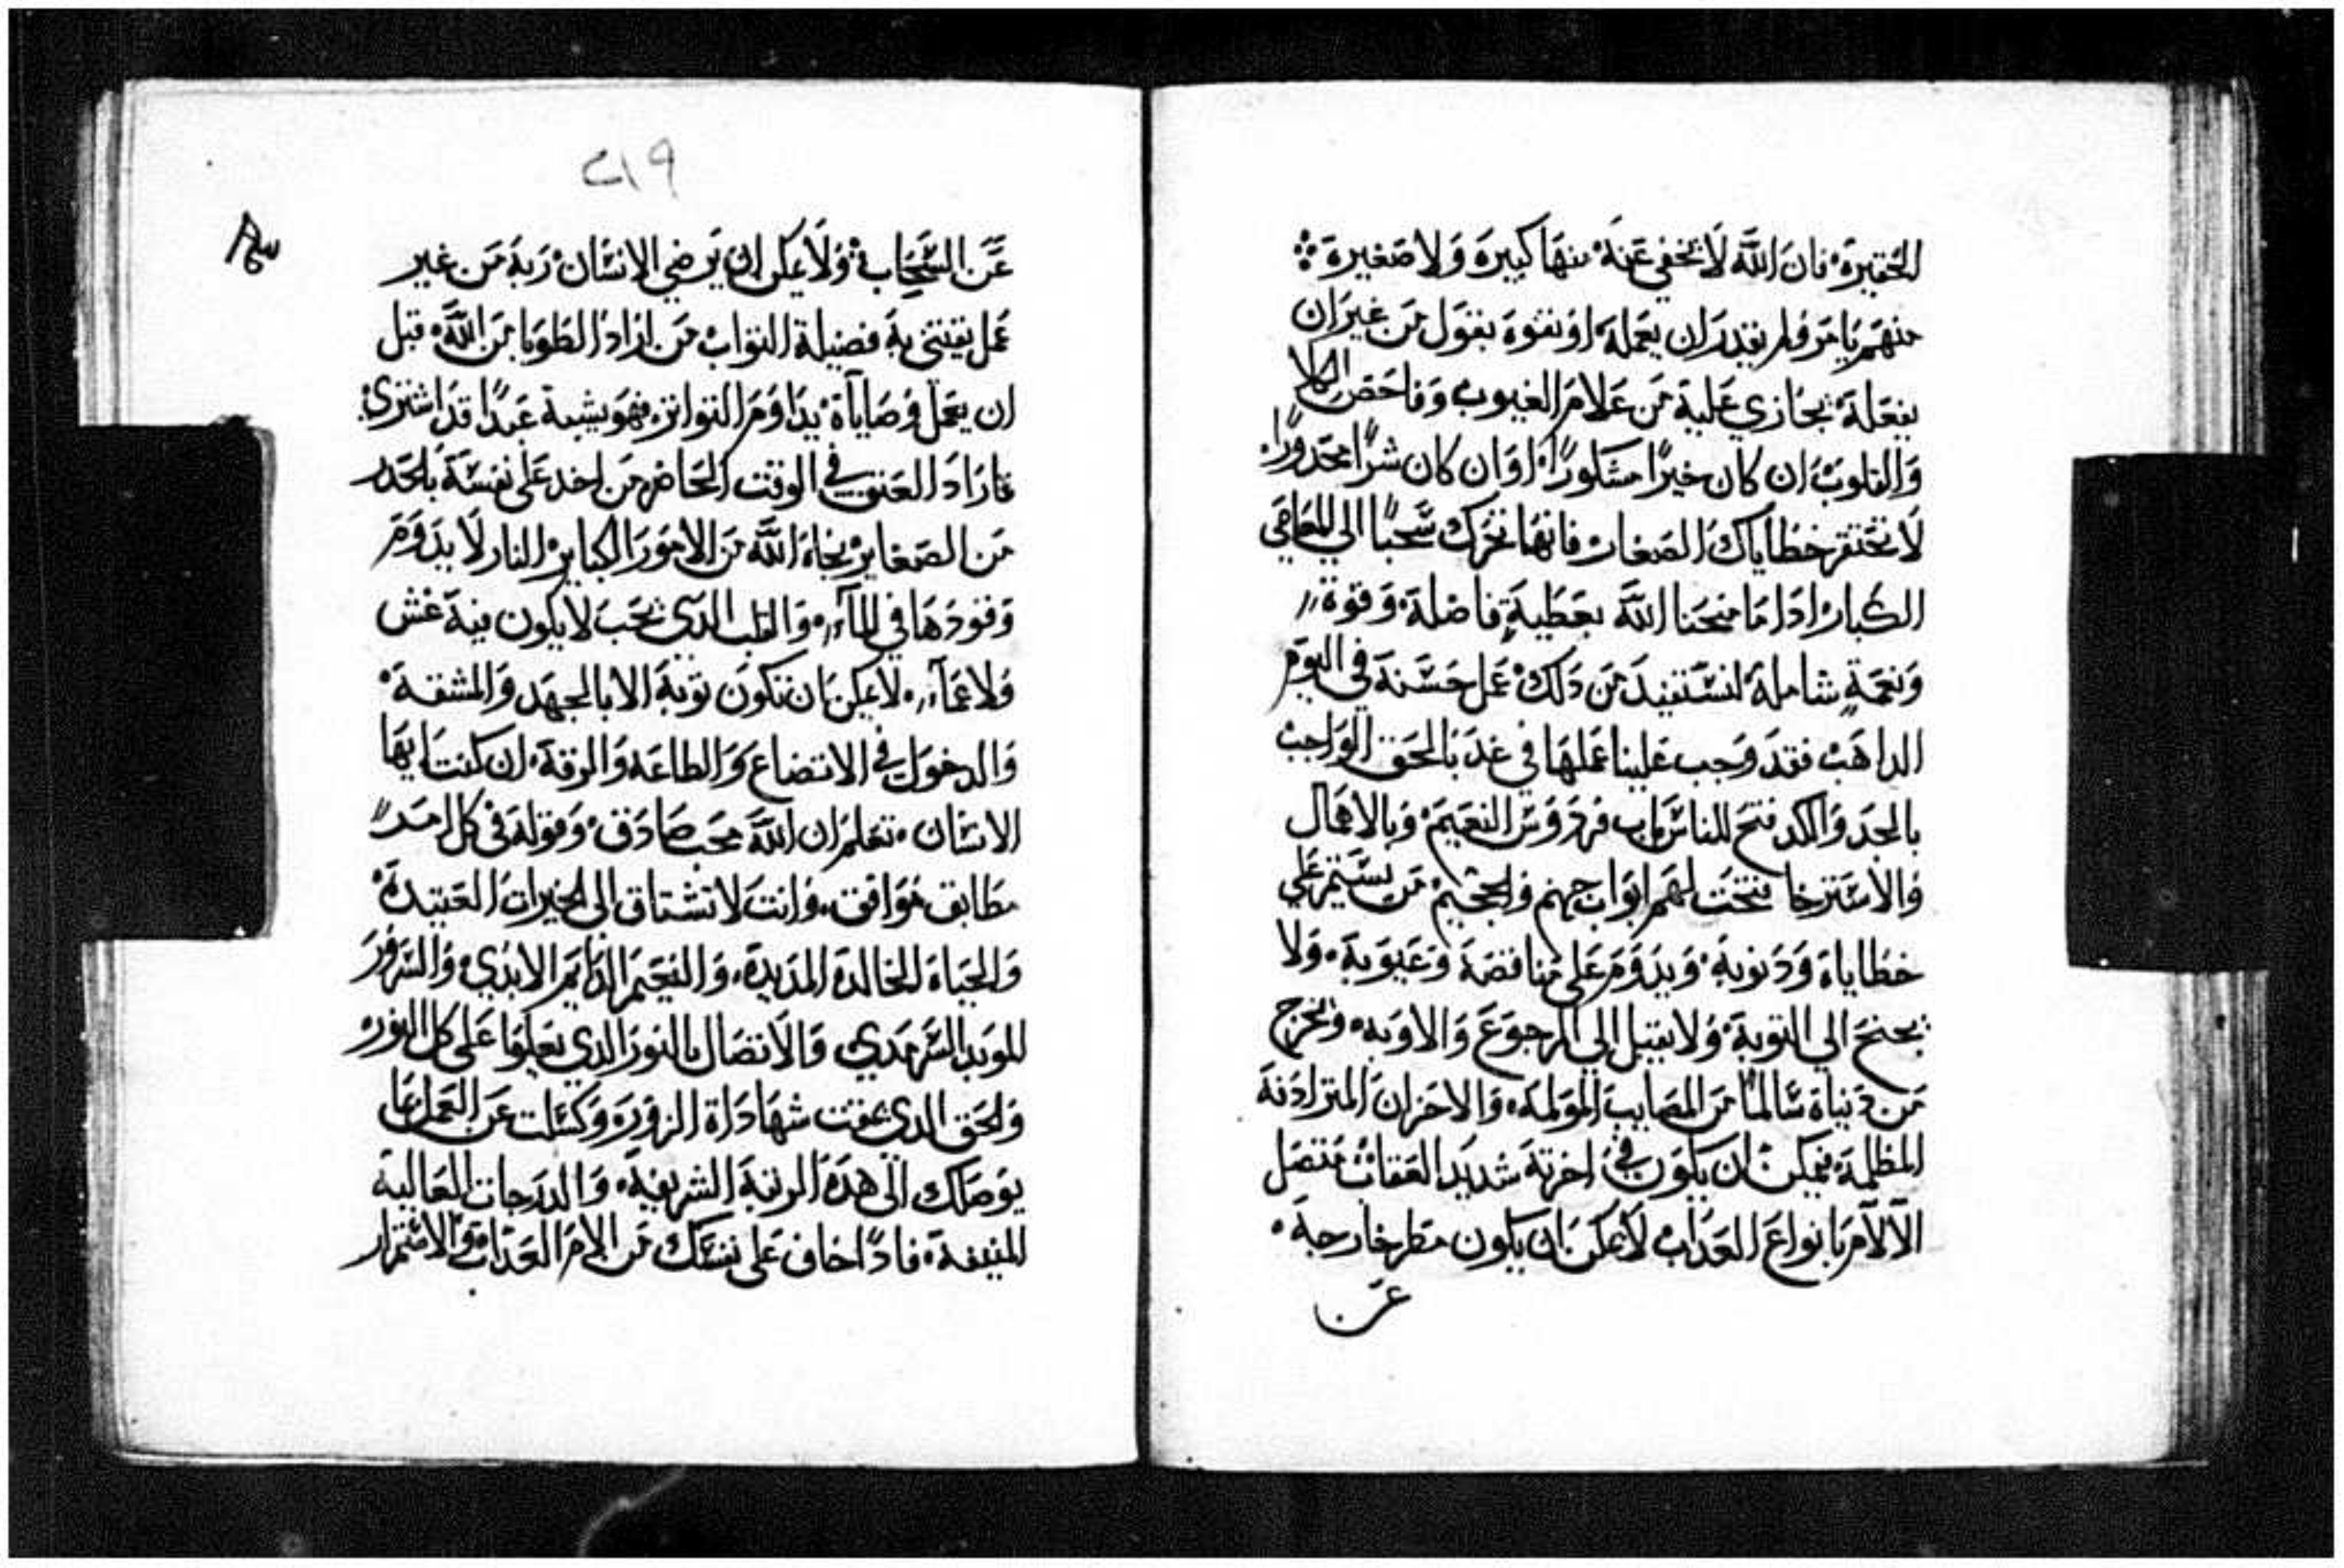 الحقيرة، فان الله لا تخفي عنه منها كبيرة ولا صغيرة
منهم يامر ولم يقدر ان يعمله او يفوه بقول من غير ان
يفعله يجازي عليه من علام الغيوب وفاحص الكلا
والقلوب ان كان خيرًا مشكورًا، او ان كان شرًا محدورًا،
لا تحتقر خطاياك الصغار فانها تجرك سحبًا الي المعاصي
الكبار ادا ما منحنا الله بعطيةٍ فاضلة، وقوة
ونعمةٍ شاملة، لنستفيد من دلك عمل حسنة في اليوم
الداهب فقد وجب علينا عملها في غد بالحق الواجب
بالجد والكد فتح للناس باب فردوس النعيم، وبالاهمال
والاسترخا فتحت لهم ابواب جهنم والجحيم من يستمر علي
خطاياه ودنوبه، ويدوم علي مناقصه وعيوبه، ولا
يجنح الي التوبة، ولا يميل الي الرجوع والاوبه، وخرج
من دنياه سالمًا من المصايب المولمة، والاحزان المترادفة
المظلمة، يمكن ان يكون في اخرته شديد العقاب متصل
الآلآم بانواع العداب لا يمكن ان يكون مطر خارجه،
عن
٢١٩
عن السحاب، ولا يمكن ان يرضي الانسان ربه من غير
عمل يقتني به فضيلة التواب من اراد الطوبا من الله، قبل
ان يعمل وصاياه، يداوم التواتر، فهو يشبه عبدًا قد اشتري
فاراد العتق في الوقت الحاضر من اخد علي نفسه بالحدر
من الصغاير نجاه الله من الامور الكباير النار لا يدوم
وقودها في المآء، والقلب الدي يحب لا يكون فيه غش
ولا عمآء، لا يمكن ان تكون توبة الا بالجهد والمشقة،
والدخول في الاتضاع والطاعه والرقة، ان كنت ايها
الانسان، تعلم ان الله محب صادق، وقوله في كل امد
مطابق موافق، وانت لا تشتاق الي الخيرات العتيدة،
والحياة الخالدة المديدة، والنعيم الدايم الابدي، والسرور
الموبد السرمدي والاتصال بالنور الدي يعلوا علي كل النور
والحق الدي عفت شهاداة الزور، وكسلت عن العمل بما
يوصلك الي هده الرتبة الشريفة، والدرجات العالية
المنيفة، فادًا خاف علي نفسك من الام العداب والاستمرار